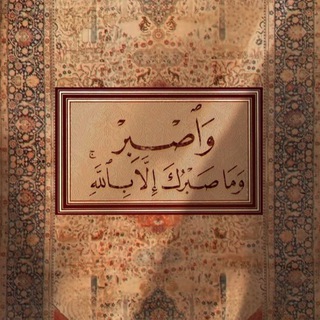 وَٱصْبِرْ
وَمَا صَبْرُكَ إِلَّا بِٱللَّهِ ۚ